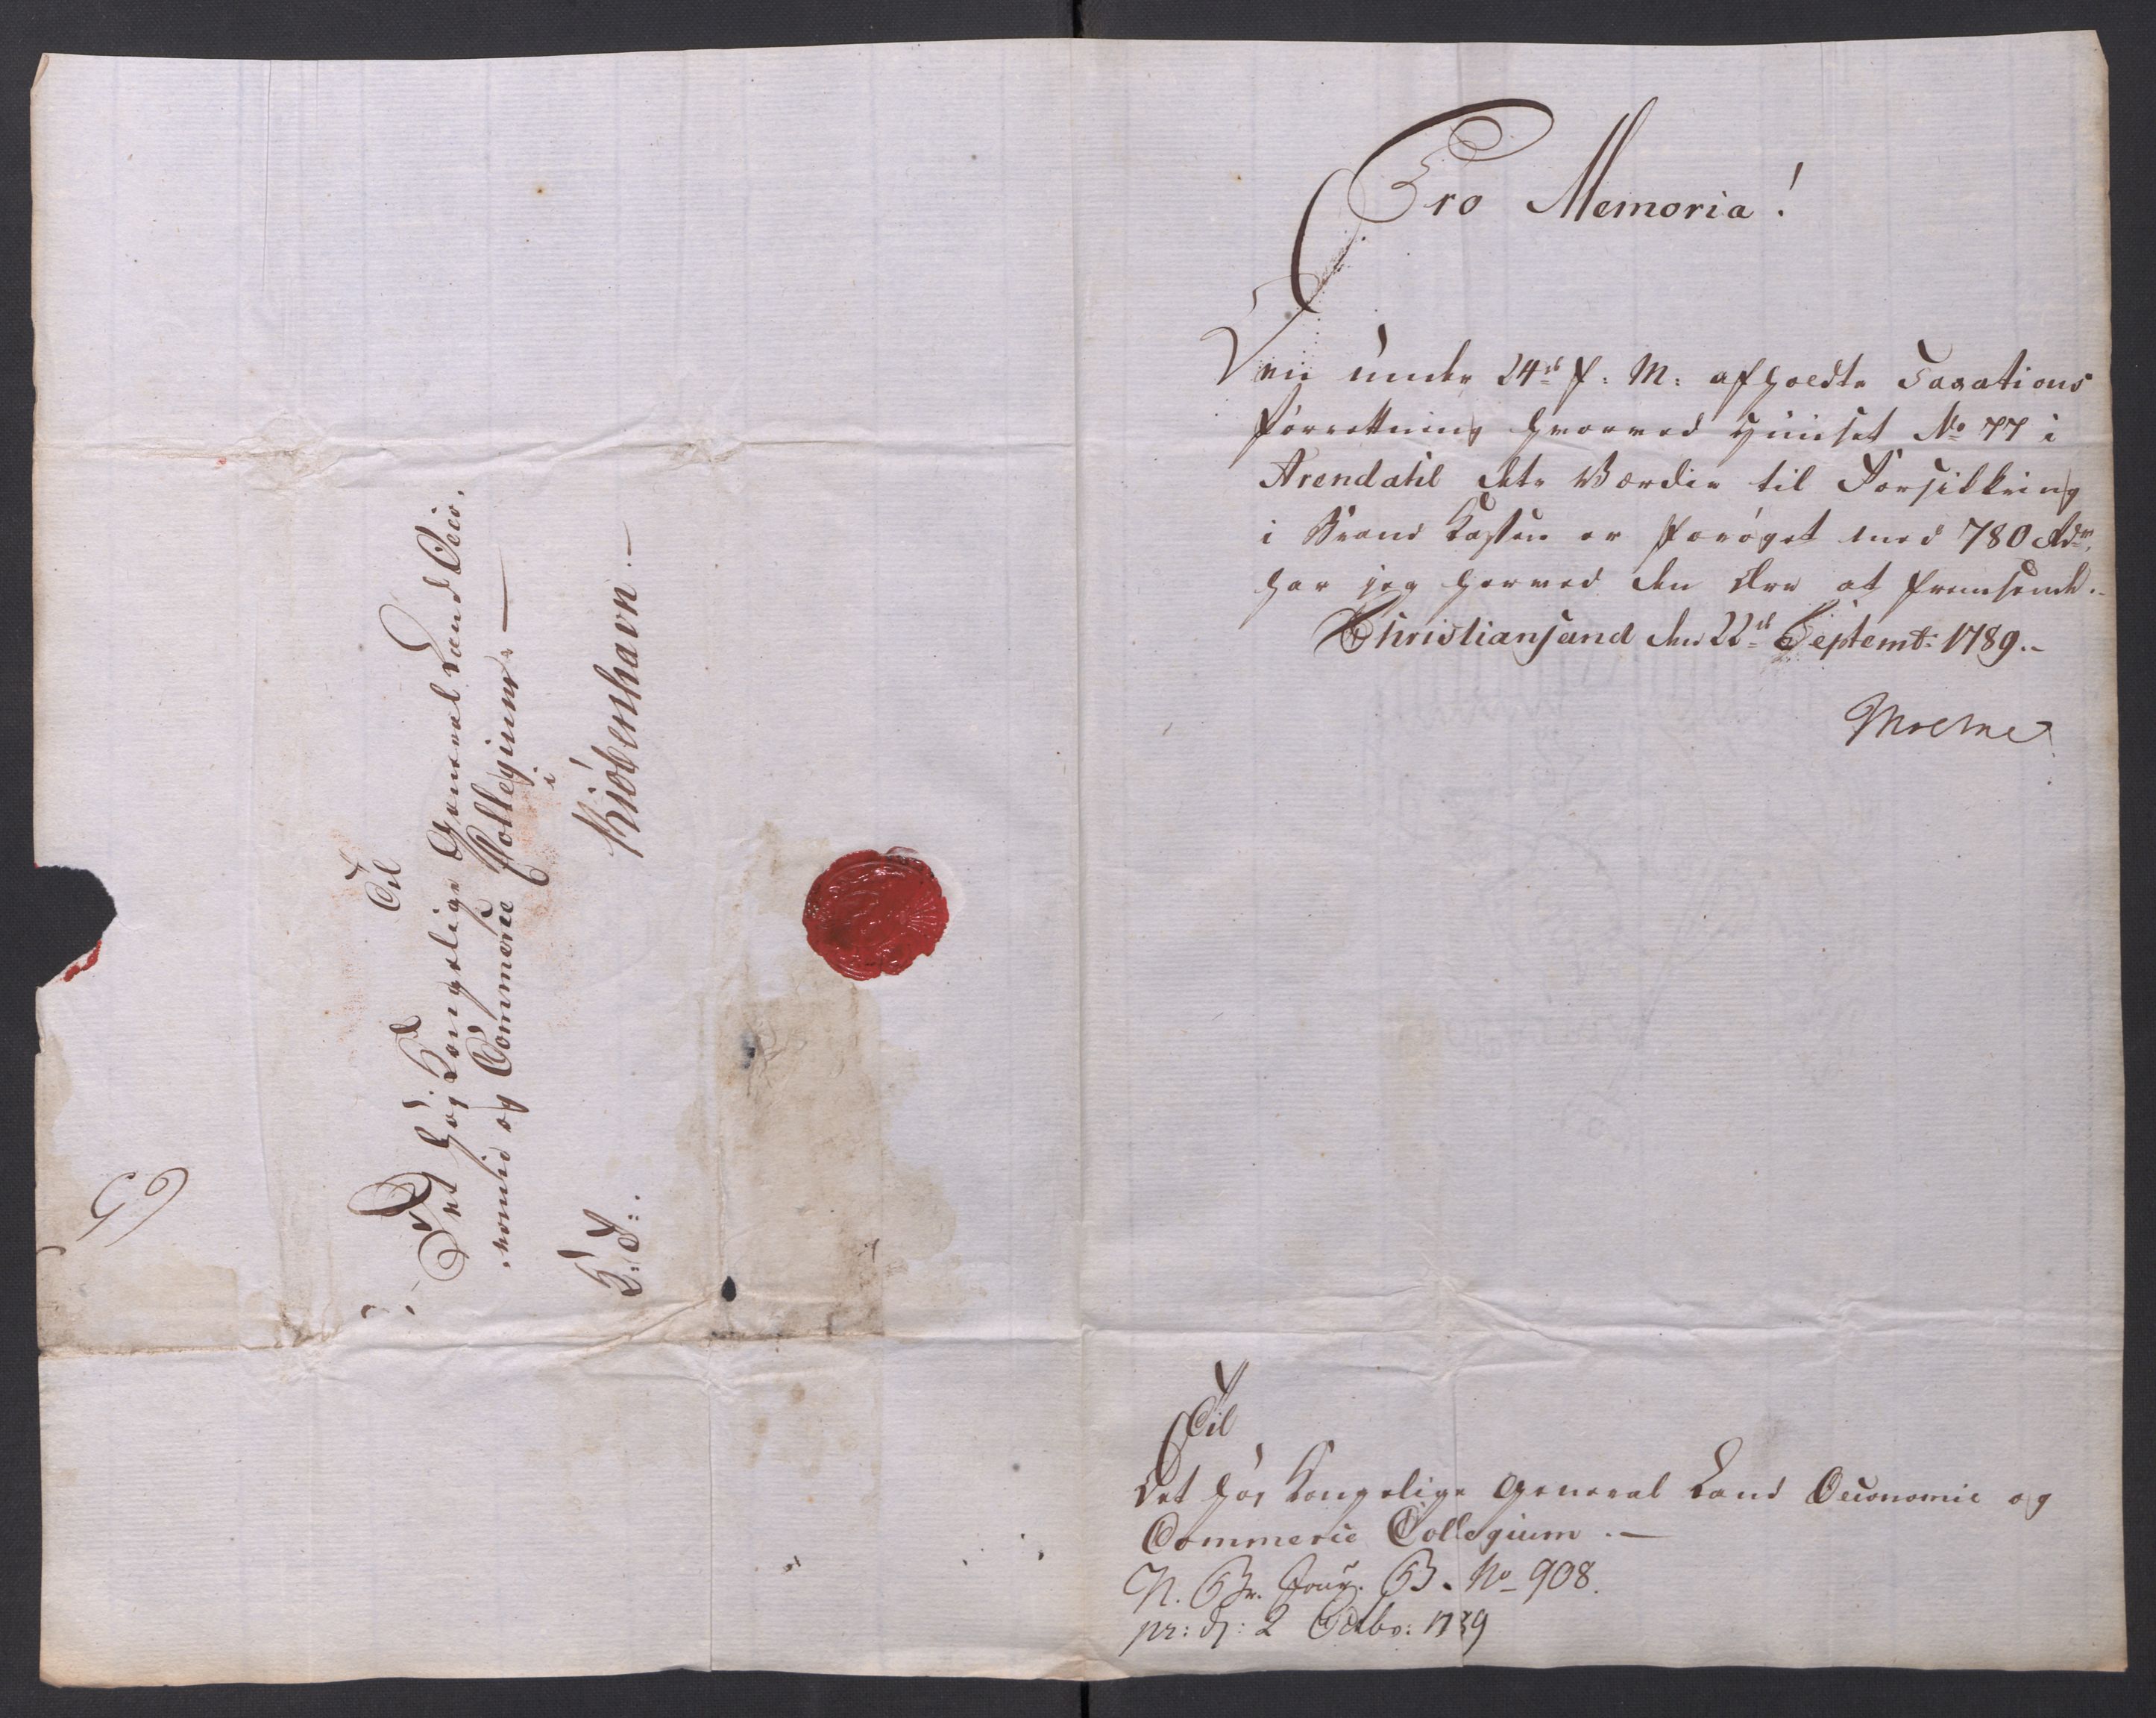 Til
Det høj Kongelige General Land Oeco,
,nomie og Commerce Collegium
i
Kiöbenhavn.
K: T:
65
Pro Memoria!
Den under 24de f: M: afholdte Taxations
forrettning hvorved Huuset No 77 i
Arendahl dets Værdie til Forsikkring
i Brand Cassen er forøget med 780 rdr,
har jeg herved den Ære at fremsende.
Christiansand den 22de Septemb: 1789.
Til
Det høj Kongelige General Land Oeconomie og
Commerce Collegium.
N. Br. Jour. B. No 908.
pr: d: 2 Octbr: 1789